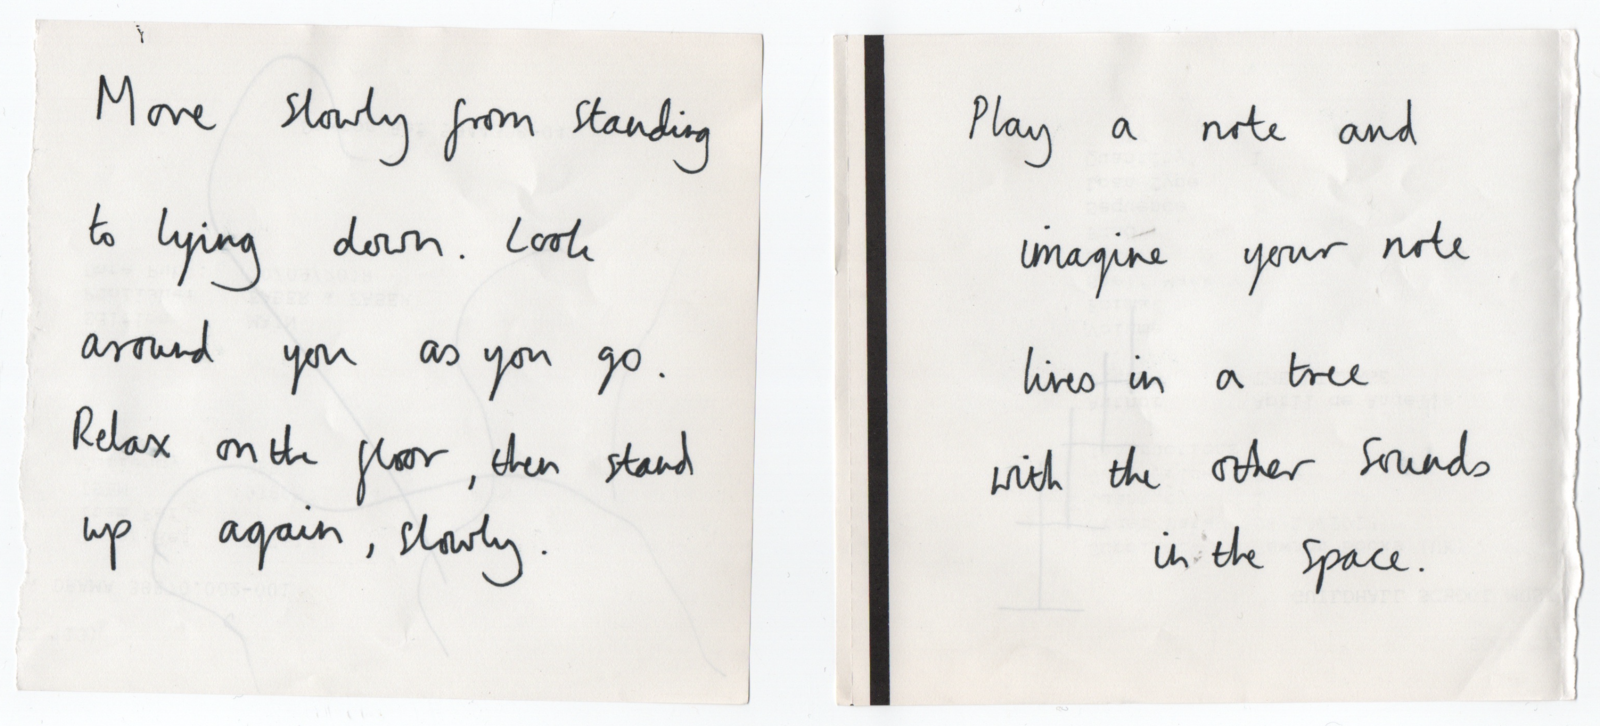 Move slowly from standing
to lying down. Look
around you as you go.
Relax on the floor, then stand
up again, slowly.
Play a note and
imagine your note
lives in a tree
with the other sounds
in the space.